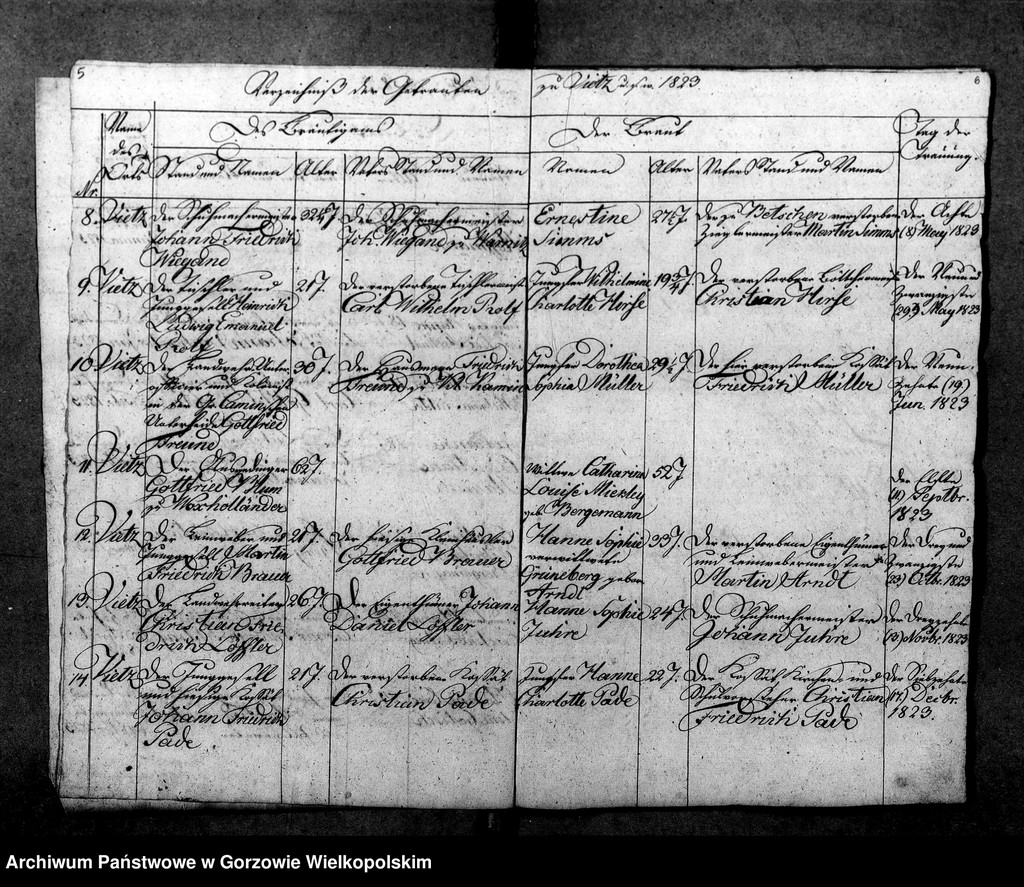 5
6
Verzeichniß der Getrauten zu Vietz u.s.w. 1823.
Nr.
Name des Orts
Des Bräutigams
Der Braut
Tag der Trauung.
Stand und Namen
Alter
Vaters Stand und Namen
Namen
Alter
Vaters Stand und Namen
8. Vietz
Der Schuhmachermeister
Johann Friedrich
Wiegand
Der Schuhmachermeister
Joh. Wiegand zu
Ernestine
Simms
Der zu Betschen verstorbene
Ziegelmeister Martin Simms
Der Achte
(8) May 1823
9. Vietz
Der Tischler und
Junggesell Heinrich
Ludwig Emanuel
Rolf
21 J.
Der verstorbene Tischlermeister
Carl Wilhelm Rolf
Jungfer Wilhelmine
Charlotte Hirse
Der verstorbene
Christian Hirse
Der Neun und
Zwanzigste
(29) May 1823
10. Vietz
Der Landwehr Unter-
offizier und
in der Gr. Caminschen
Unterheide Gottfried
Freund
30 J.
Der Friedrich
Freund zu Kl. Kamin
Jungfer Dorothea
Sophia Müller
Der hier verstorbene Kossät
Friedrich Müller
Der Neun-
zehnte (19)
Jun. 1823
11. Vietz
Der Ausgedinger
Gottfried Blum
zu Woxholländer
62 J.
Wittwe Catharina
Louise Mickley
geb. Bergemann
52 J
Der Elfte
(11) Septbr.
1823
12. Vietz
Der Leinweber und
Junggesell Martin
Friedrich Brauer
21 J.
Der hiesige
Gottfried Brauer
Hanne Sophie
verwittwete
Grüneberg geborn
Arndt
33 J.
Der verstorbene Eigenthümer
und Leinwebermeister
Martin Arndt
Der Drey und
Zwanzigste
(23) Octbr. 1823
13. Vietz
Der
Christian Frie-
drich Löffler
26 J.
Der Eigenthümer Johann
Daniel Löffler
Hanne Sophie
Juhre
24 J.
Der Schuhmachermeister
Johann Juhre
Der Dreyzehnte
(13) Novbr. 1823
14. Vietz
Der Junggesell
und hiesige Kossät
Johann Friedrich
Pade
21 J.
Der verstorbene Kossät
Christian Pade
Jungfer Hanne
Charlotte Pade
22 J.
Der Kossät Kirchen und
Schulvorsteher Christian
Friedrich Pade
Der Siebzehnte
(17) Decbr.
1823.
Archiwum Państwowe w Gorzowie Wielkopolskim